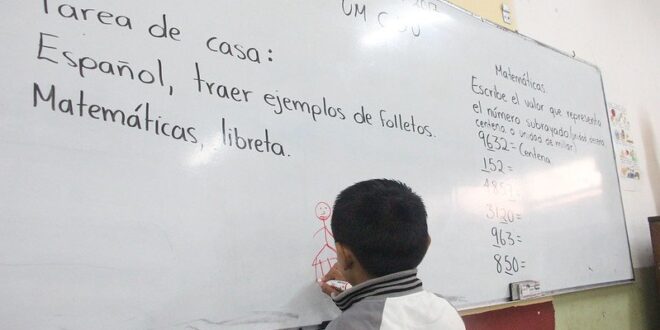 Tarea de casa:
Español, traer ejemplos de folletos.
Matemáticas, libreta.
Matemáticas.
Escribe el valor que representa
el número subrayado (unidad, decena
centena o unidad de millar)
9632 = Centena
152 =
3120 =
963 =
850 =